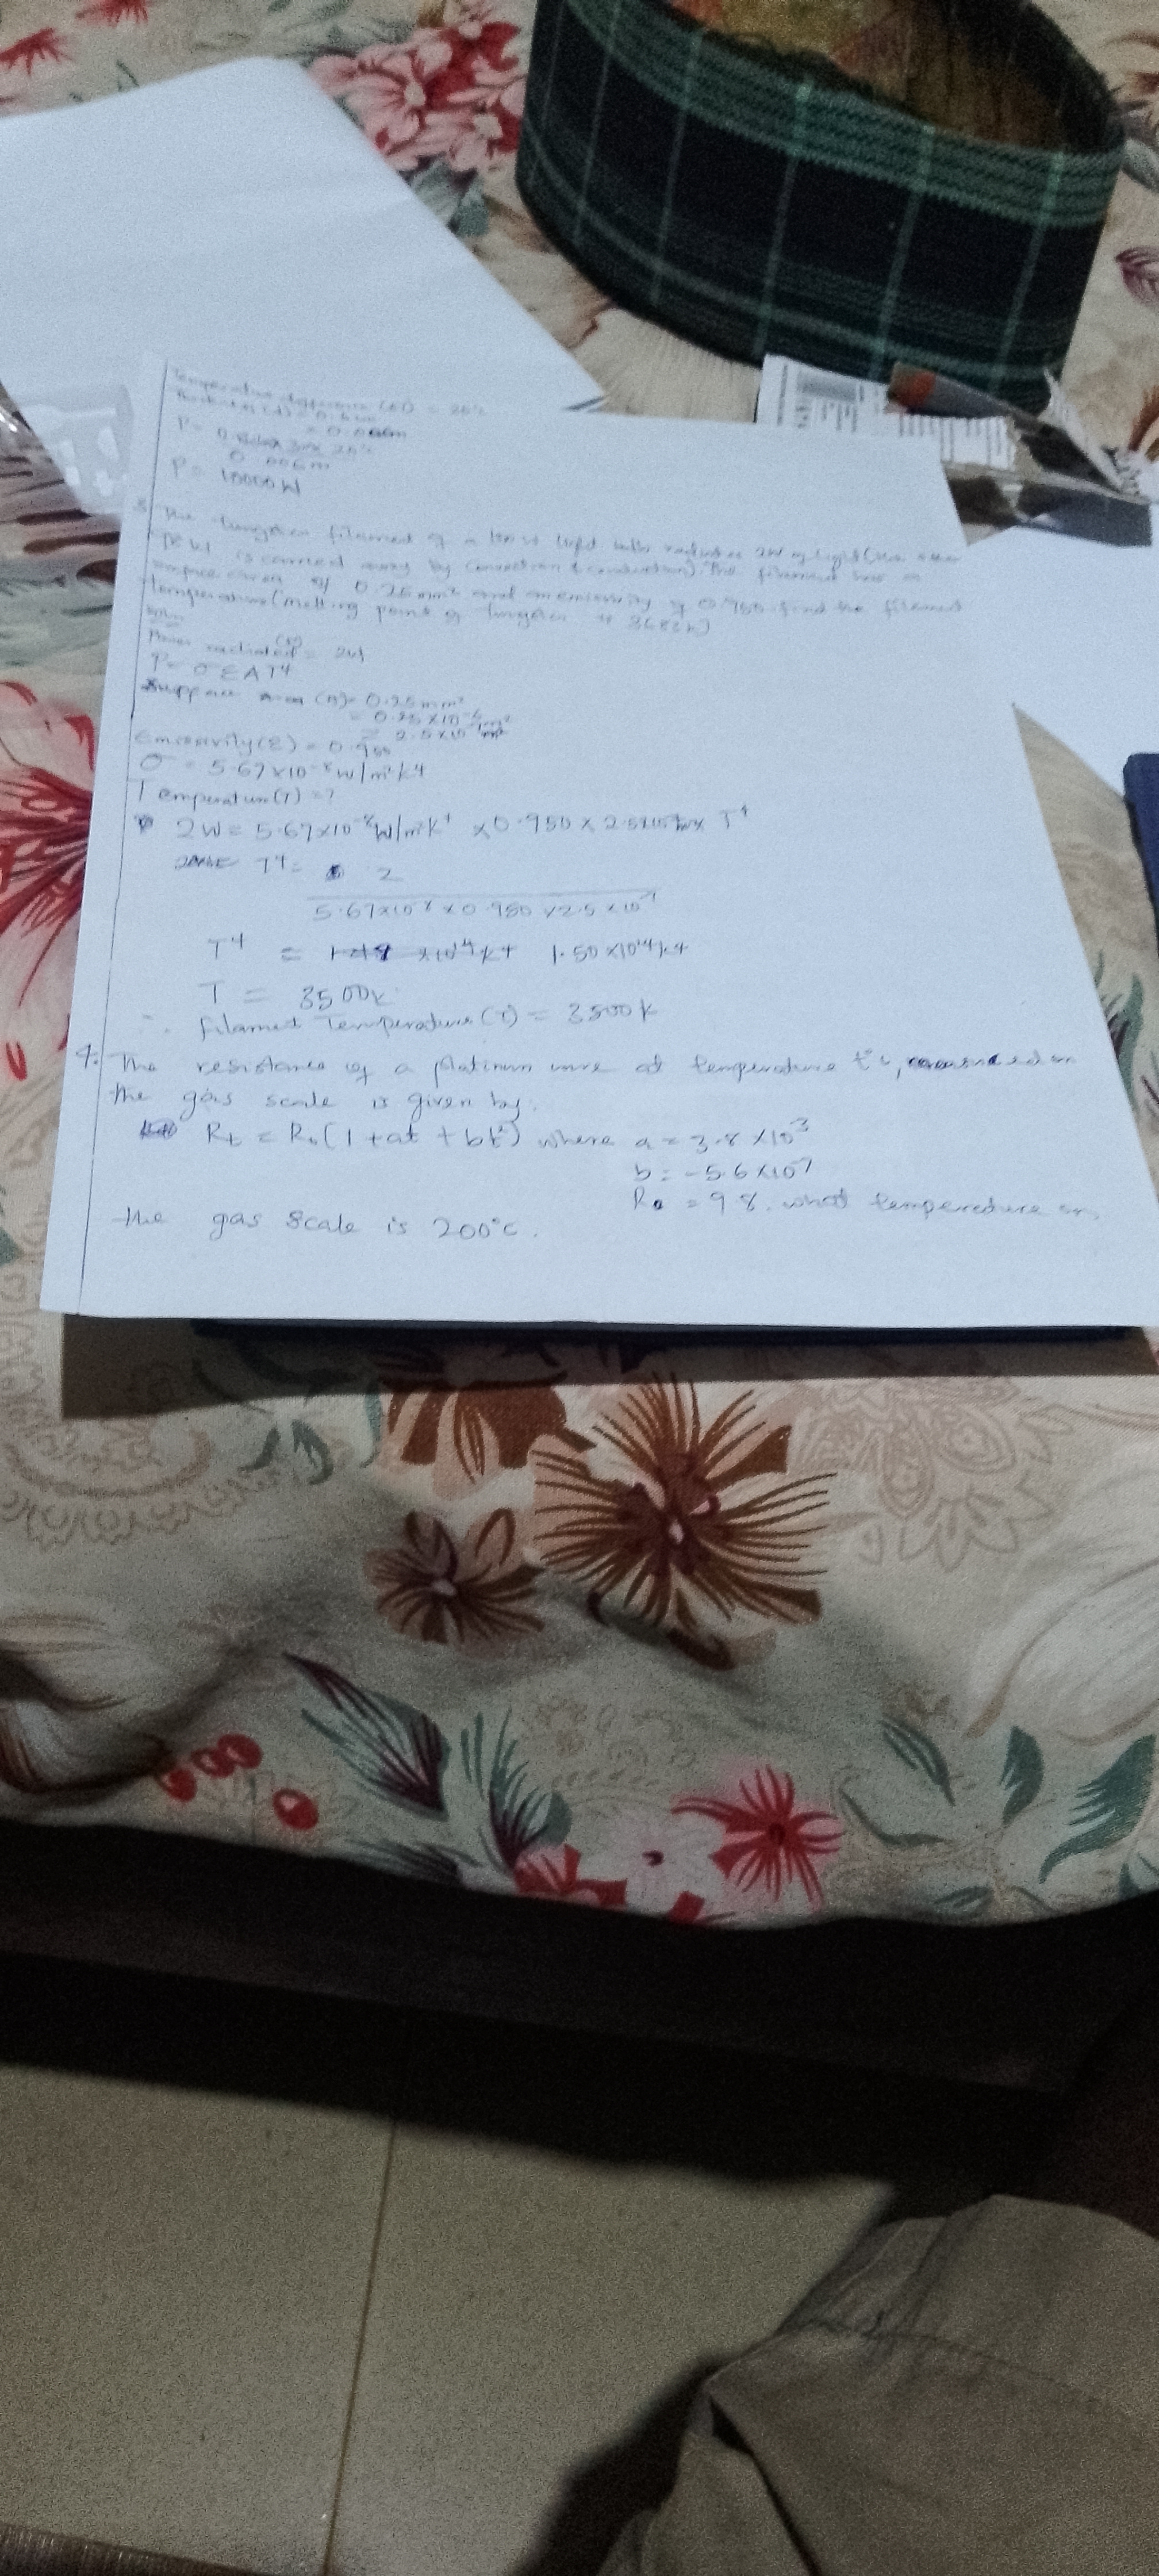 Temperature difference (ΔT) = 25°C
= 0.006m
P=
0.006m
P = 10000W
3. The tungsten filament of a light bulb radiates 2W of light (the other
is carried away by convection & conduction). The filament has a
surface area of 0.25mm² and an emissivity of 0.950. find the filament
temperature (melting point of tungsten is 3683K)
Soln
Power radiated (P) = 2W
P = σεAT⁴
Surface area (A) = 0.25mm²
= 0.25 × 10⁻⁶m²
= 2.5×10⁻⁷m²
Emissivity (ε) = 0.950
σ = 5.67×10⁻⁸W/m²k⁴
Temperature (T) = ?
2W = 5.67×10⁻⁸W/m²k⁴ × 0.950 × 2.5×10⁻⁷ × T⁴
T⁴ = 2
5.67×10⁻⁸ × 0.950 × 2.5 × 10⁻⁷
T⁴ = 1.50 ×10¹⁴k⁴
T = 3500k
∴ filament Temperature (T) = 3500k
4. The resistance of a platinum wire at temperature t°c, measured on
the gas scale is given by:
Rt = R₀(1 + at + bt²) where a = 3.8 × 10³
b = -5.6×10⁷
R₀ = 98. what temperature on
the gas scale is 200°c.